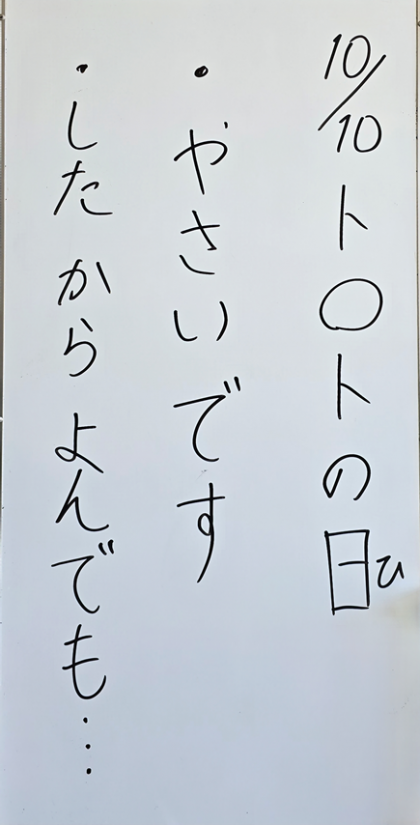 10/10 ト〇トの日ひ
・やさいです
・したからよんでも…